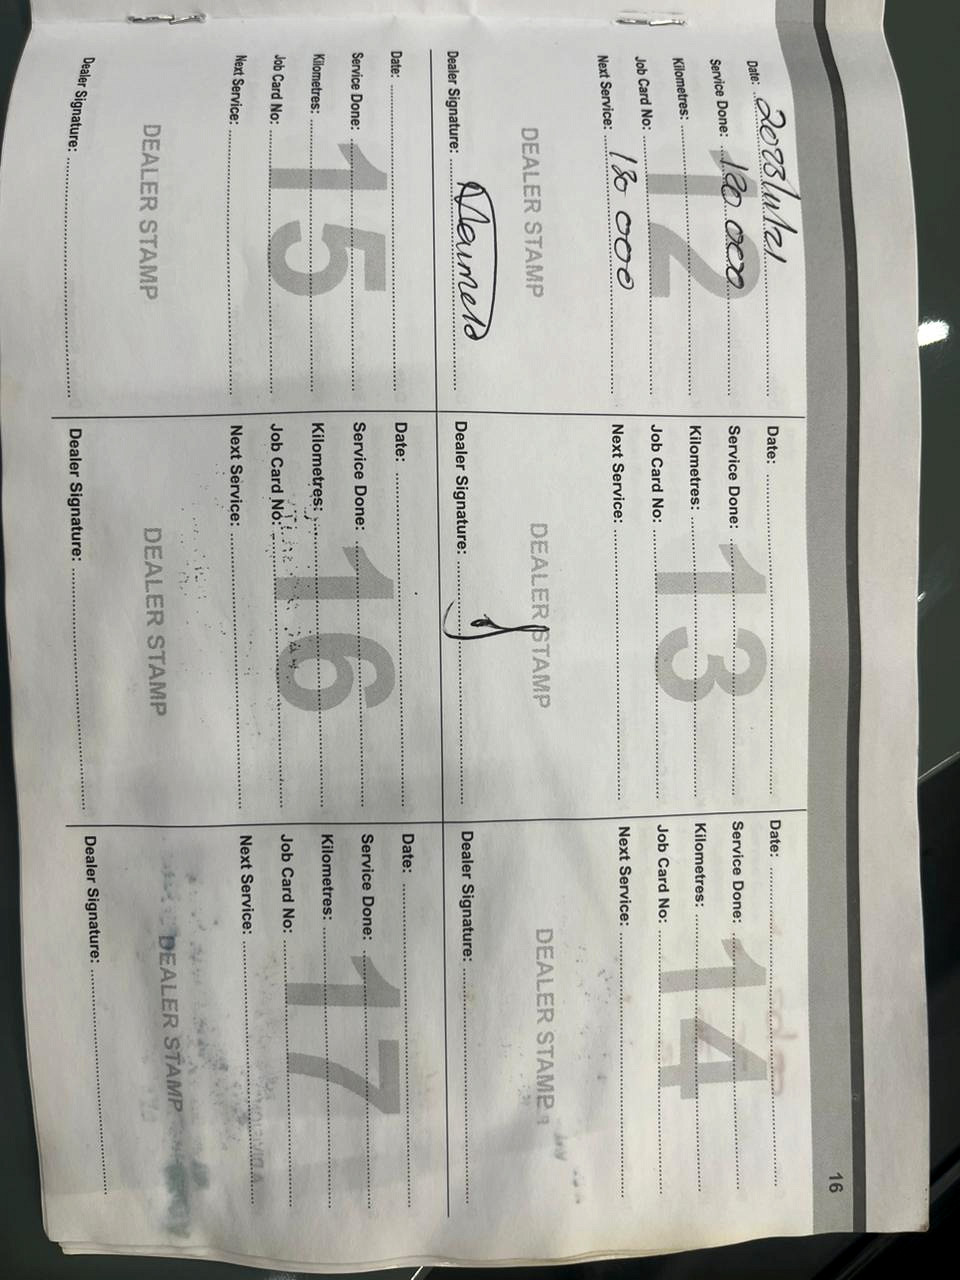 16
Date: 2023/11/21
Service Done: 120 000
Kilometres:
Job Card No:
Next Service: 130 000
12
DEALER STAMP
Dealer Signature:
Date:
Service Done:
Kilometres:
Job Card No:
Next Service:
13
DEALER STAMP
Dealer Signature:
Date:
Service Done:
Kilometres:
Job Card No:
Next Service:
14
DEALER STAMP
Dealer Signature:
Date:
Service Done:
Kilometres:
Job Card No:
Next Service:
15
DEALER STAMP
Dealer Signature:
Date:
Service Done:
Kilometres:
Job Card No:
Next Service:
16
DEALER STAMP
Dealer Signature:
Date:
Service Done:
Kilometres:
Job Card No:
Next Service:
17
DEALER STAMP
Dealer Signature: